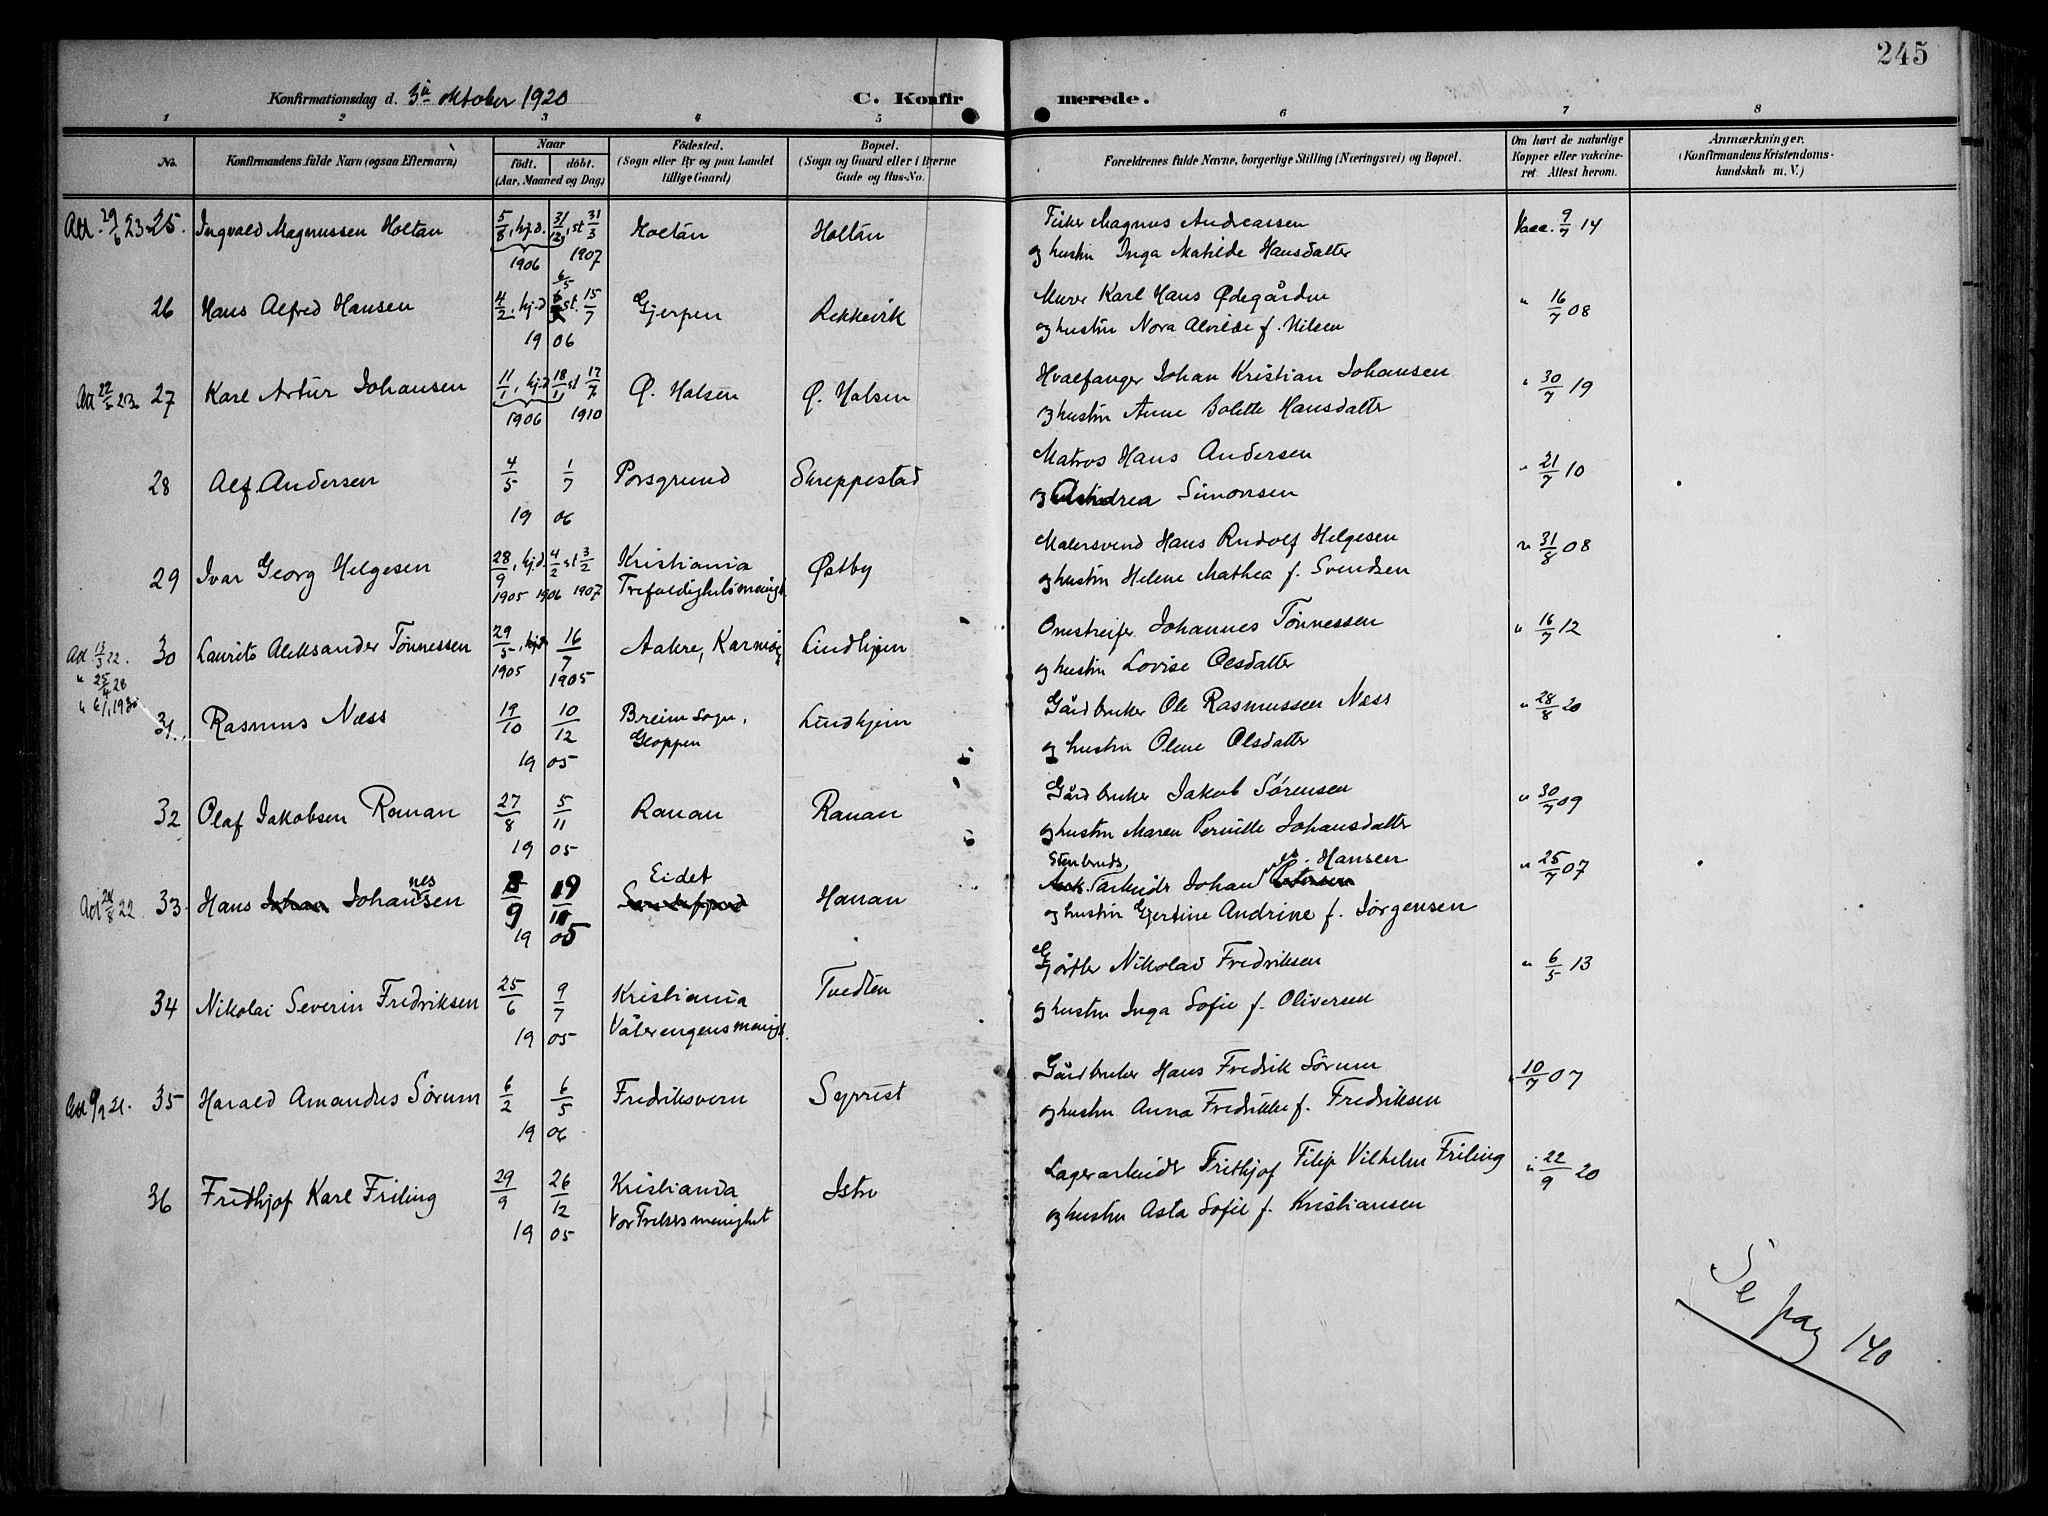 245
Konfirmationsdag d. 3die oktober 1920 C. Konfirmerede.
1 2 3 4 5 6 7 8
No. Konfirmandens fulde Navn (ogsaa Efternavn) Naar født. døbt. (Aar, Maaned og Dag) Fødested. (Sogn eller By og paa Landet tillige Gaard) Bopæl. (Sogn og Gaard eller i Byerne Gade og Hus-No. Forældrenes fulde Navne, borgerlige Stilling (Næringsvei) og Bopæl. Om havt de naturlige Kopper eller vakcineret. Attest herom. Anmærkninger. (Konfirmandens Kristendomskundskab m. V.)
Att. 29/6 23. 25. Ingvald Magnussen Holtan 5/8, hj.d. 31/12, st 31/3 Holtan Holtan Fisker Magnus Andreassen Vacc. 9/7 14
1906 1907 og hustru Inga Matilde Hansdatter
26 Hans Alfred Hansen 4/2, hj.d 6/5 st. 15/7 Gjerpen Rekkevik Murer Karl Hans Ødegården " 16/7 08
19 06 og hustru Nora Alvilde f. Nilsen
Att 22/5 23 27 Karl Artur Johansen 11/1, hj.d 18/11 st 17/7 Ø. Halsen Ø. Halsen Hvalfanger Johan Kristian Johansen " 30/7 19
1906 1910 og hustru Anne Bolette Hansdatter
28 Alf Andersen 4/5 1/7 Porsgrund Skreppestad Matros Hans Andersen " 21/7 10
19 06 og Andrea Simonsen
29 Ivar Georg Helgesen 28/9, hj.d. 4/2 st 3/2 Kristiania Østby Malersvend Hans Rudolf Helgesen " 31/8 08
1905 1906 1907 Trefoldighetsmenigt. og hustru Helene Mathea f. Svendsen
Att 13/3 22. 30 Laurits Aleksander Tønnessen 29/5, hj.d 16/7 Aakre, Karmøy Lindhjem Omstreifer Johannes Tønnessen " 16/7 12
" 25/4 28 1905 1905 og hustru Lovise Olsdatter
" 6/1 1930
31. Rasmus Næss 19/10 10/12 Breim sogn, Lindhjem Gårdbruker Ole Rasmussen Næss " 28/8 20
19 05 Gloppen og hustru Oline Olsdatter
32 Olaf Jakobsen Ronan 27/8 5/11 Ranan Ranan Gårdbruker Jakob Sørensen " 30/7 09
19 05 og hustru Maren Pernille Johansdatter
Att 24/8 22 33. Hans Johan Johannessen 8/9 19/11 Eidet Sandefjord Hanan Stenbruds arbeider Johannes Hansen " 25/7 07
19 05 og hustru Gjertine Andrine f. Jørgensen
34 Nikolai Severin Fredriksen 25/6 9/7 Kristiania Tvedten Gjørtler Nikolai Fredriksen " 6/5 13
19 05 Vålerengens menigt. og hustru Inga Sofie f. Oliversen
Att 9/9 21. 35 Harald Amandus Sørum 6/2 6/5 Fredriksvern Syrrist Gårdbruker Hans Fredrik Sørum " 10/7 07
19 06 og hustru Anna Fredrikke f. Fredriksen
36 Fridthjof Karl Friling 29/9 26/12 Kristiania Istre Lagerarbeider Frithjof Filip Vilhelm Friling " 22/9 20
19 05 Vor Frelsers menighet og hustru Asta Sofie f. Kristiansen
Se pag 140